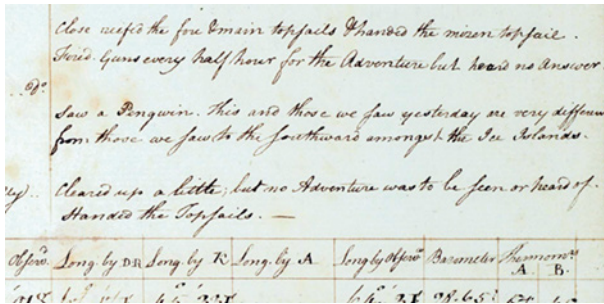 Close reefed the fore & main topsails & handed the mizen topsail.
Fired Guns every half hour for the Adventure but heard no Answer
D°
Saw a Penguin. this and those we saw yesterday are very
from those we saw to the Southward amongst the Ice Islands.
Cleared up a little; but no Adventure was to be seen or heard of.
Handed the Topsails. —
Observd. Long. by DR Long. by K Long. by A Long by Observn. Barometer Thermomrs.
A. B.